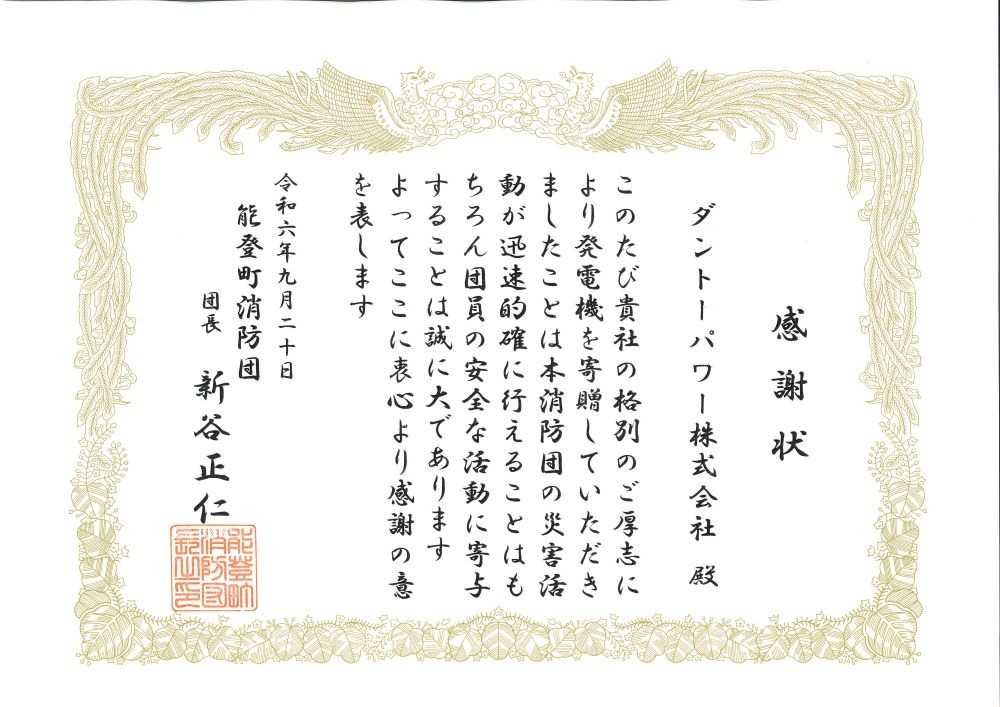 感謝状
ダントーパワー株式会社 殿
このたび貴社の格別のご厚志に
より発電機を寄贈していただき
ましたことは本消防団の災害活
動が迅速的確に行えることはも
ちろん団員の安全な活動に寄与
することは誠に大であります
よってここに衷心より感謝の意
を表します
令和六年九月二十日
能登町消防団
団長 新谷正仁
能登町
消防団
長之印